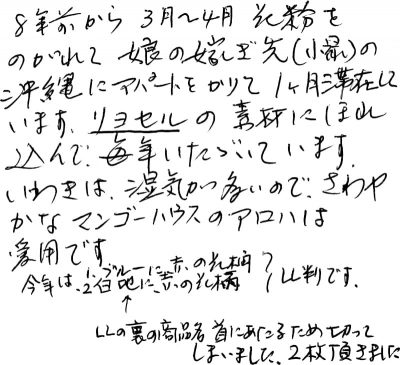 8年前から 3月〜4月 花粉を
のがれて 娘の嫁ぎ先(小禄)の
沖縄にアパートをかりて 1ヶ月滞在して
います。リヨセルの素材にほれ
込んで、毎年いただいています。
いわきは、湿気が多いので、さわや
かなマンゴーハウスのアロハは
愛用です。
今年は、1.ブルーに赤の花柄
2.白地に、赤の花柄 LL判です。
↑
LLの裏の商品名 首にあたるため切って
しまいました。2枚頂きました